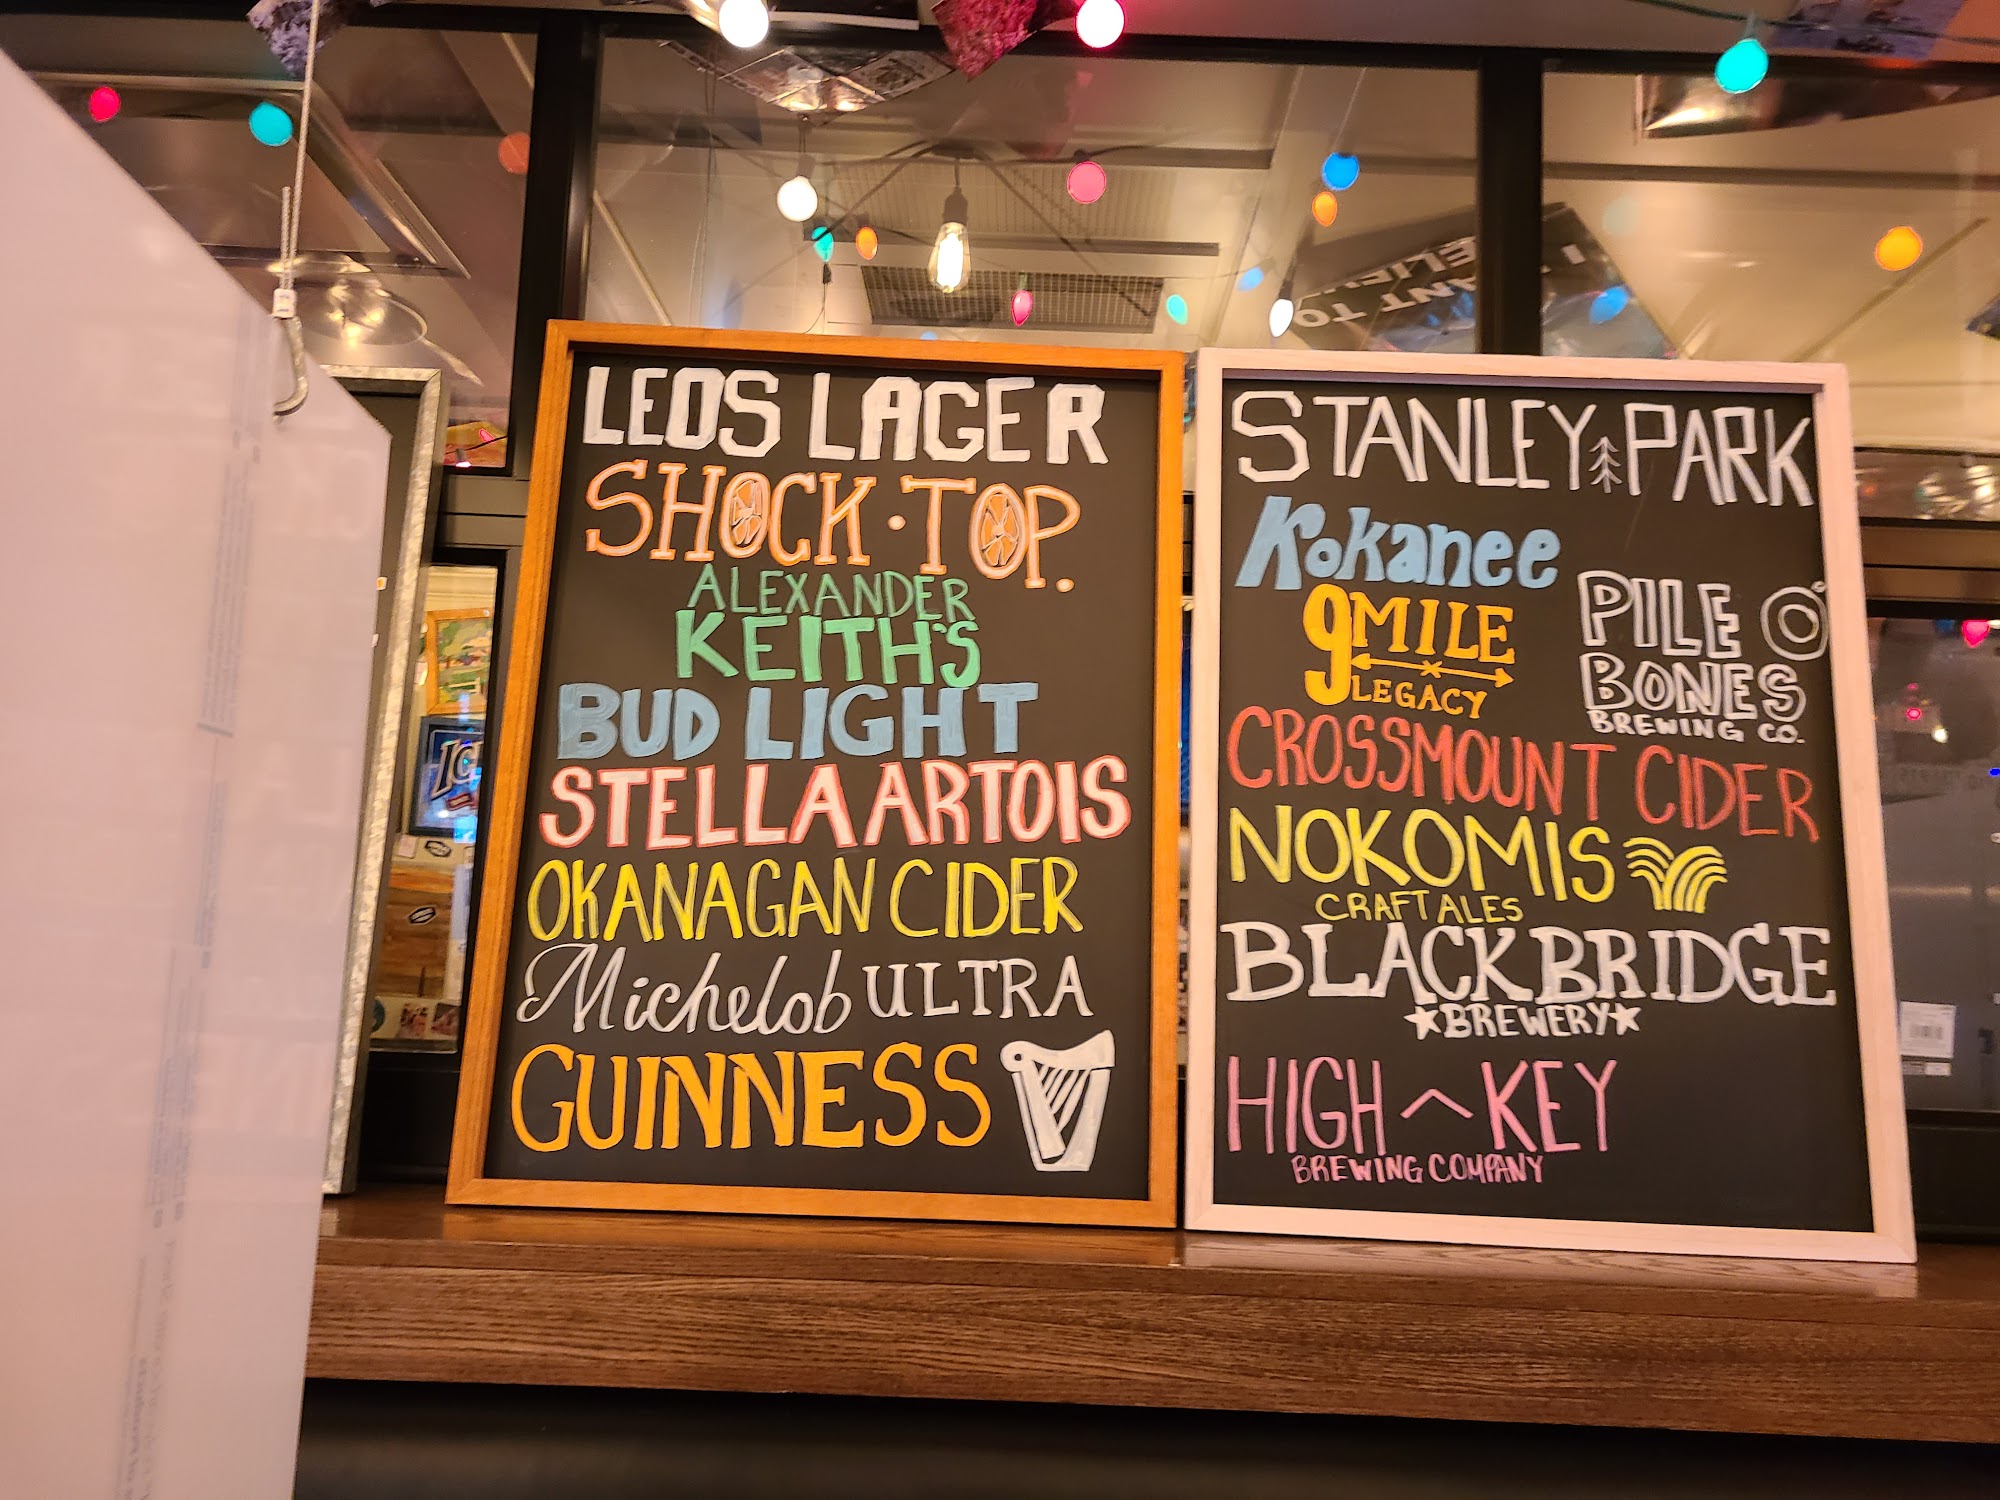 LEOS LAGER
SHOCK·TOP.
ALEXANDER
KEITH'S
BUD LIGHT
STELLA ARTOIS
OKANAGAN CIDER
Michelob ULTRA
GUINNESS
STANLEY PARK
Kokanee
9 MILE
LEGACY
PILE O'
BONES
BREWING CO.
CROSSMOUNT CIDER
NOKOMIS
CRAFT ALES
BLACKBRIDGE
BREWERY
HIGH KEY
BREWING COMPANY